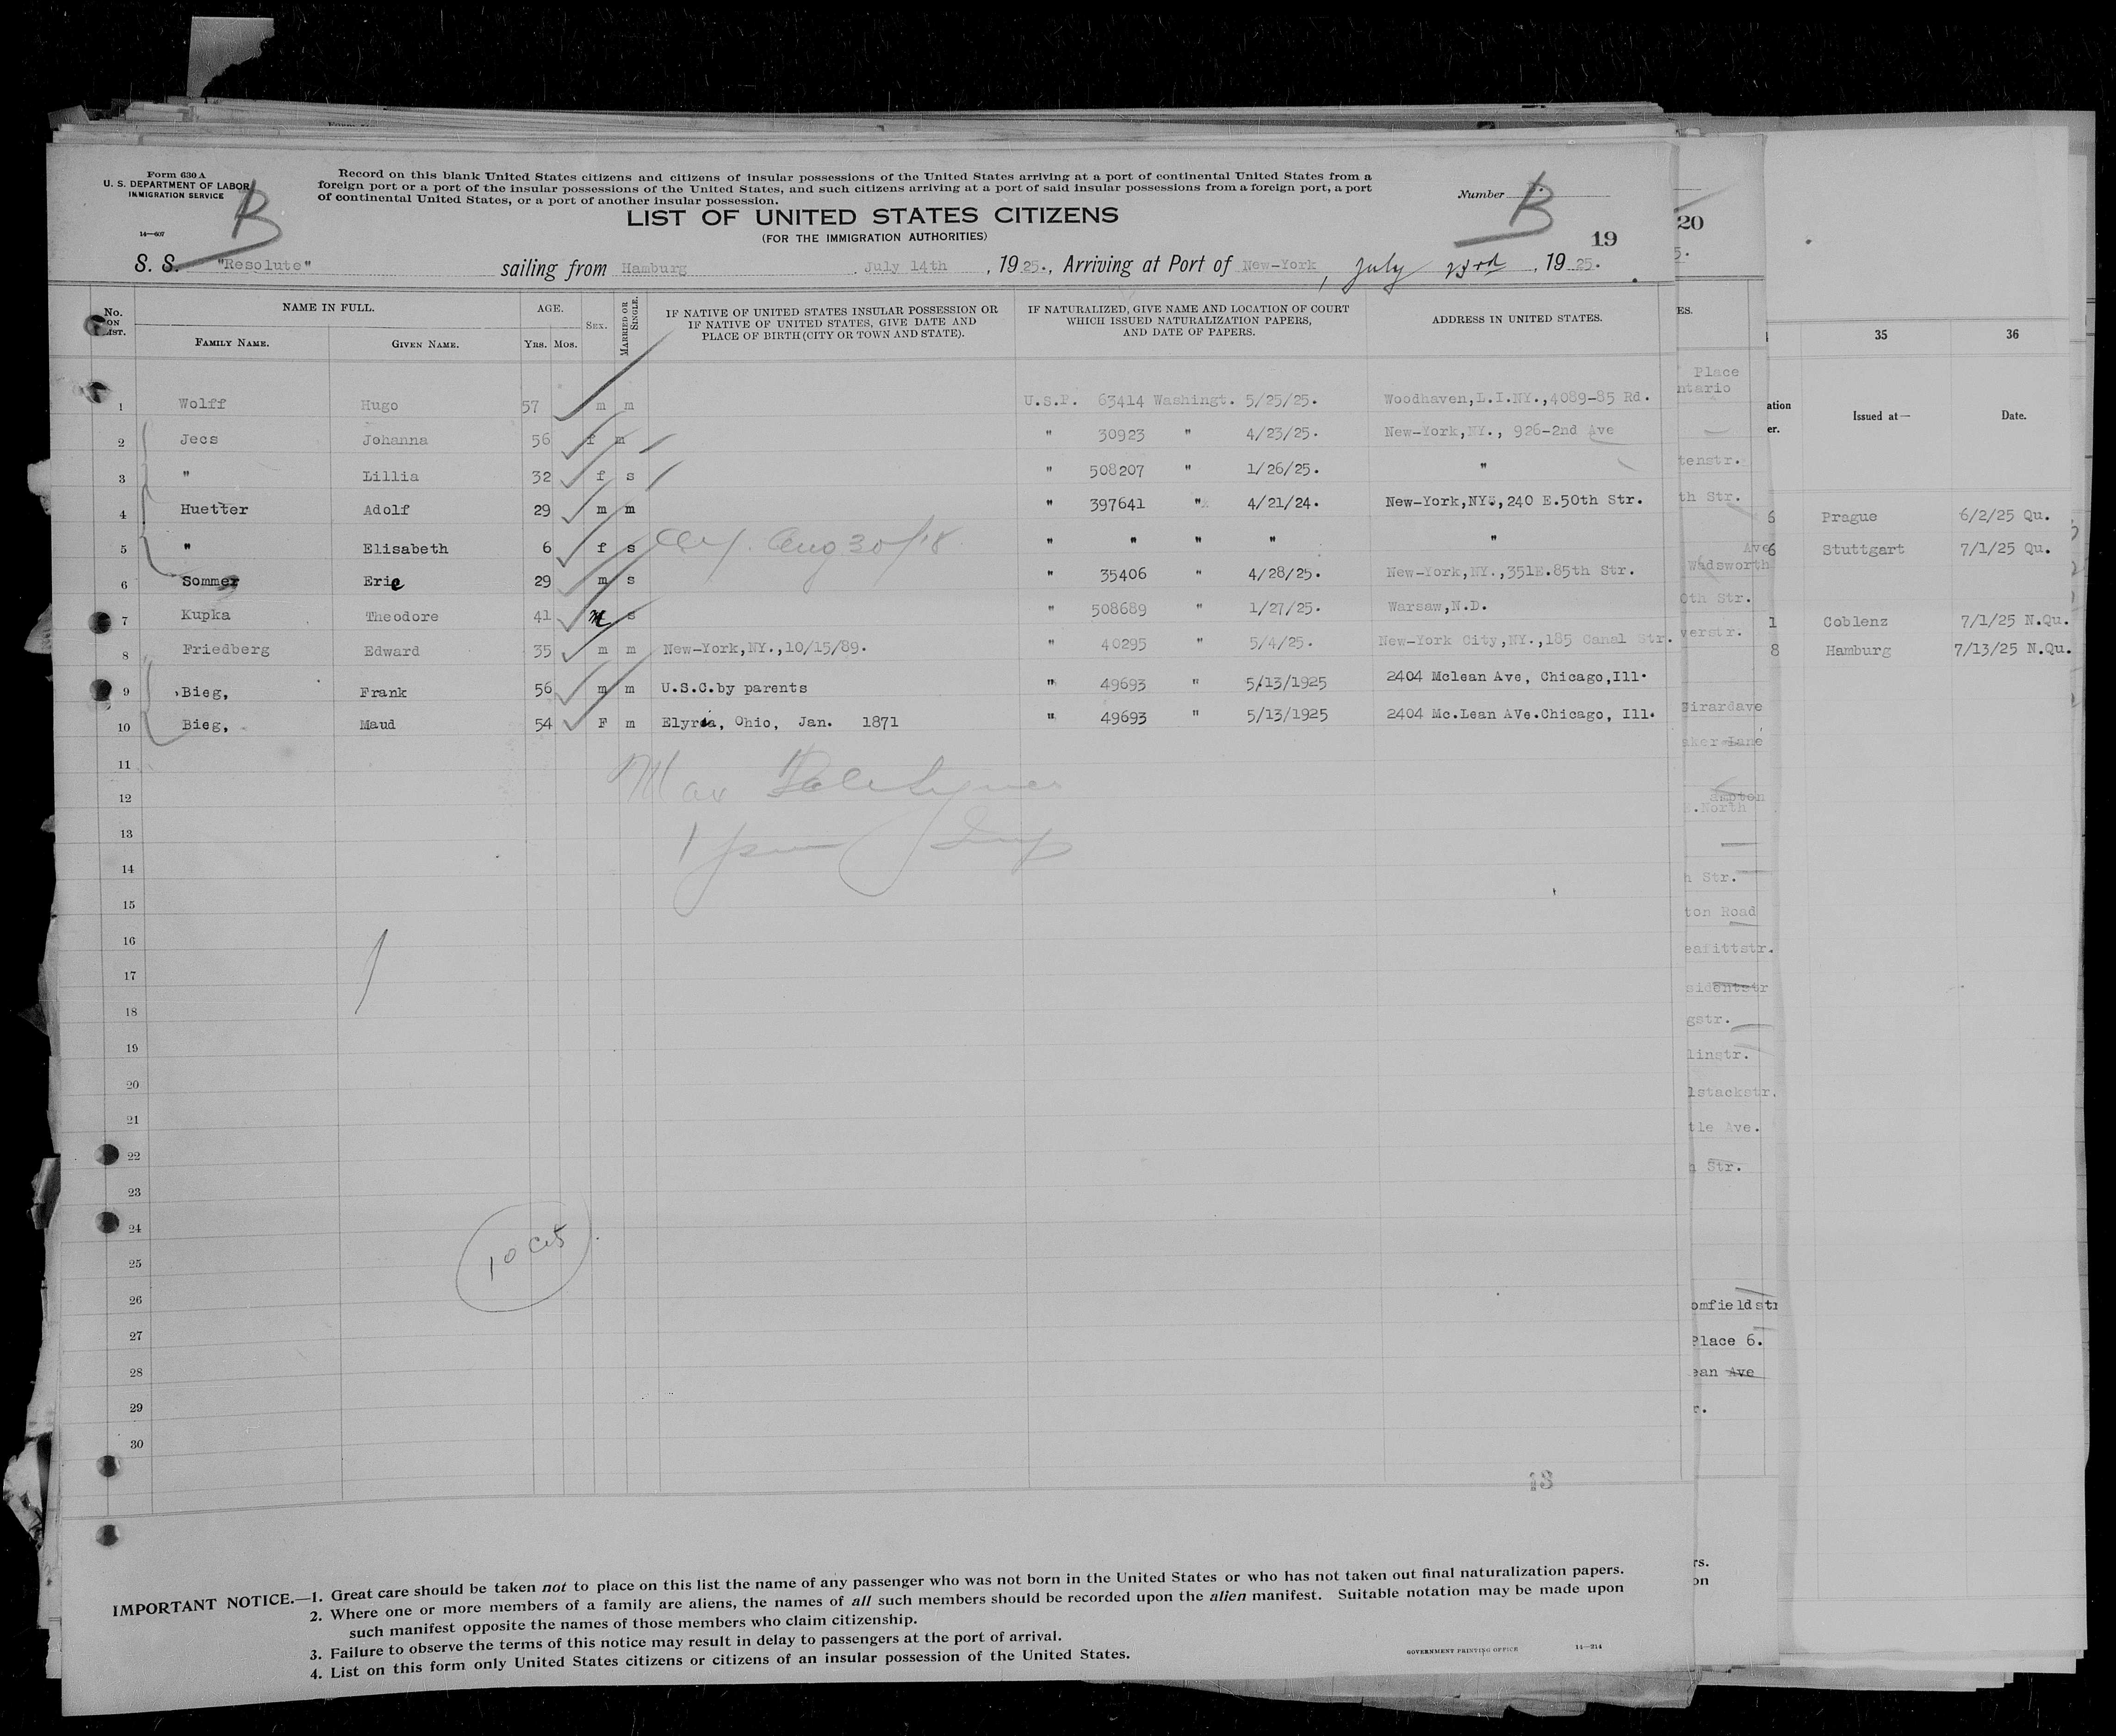 Form 630 A
U. S. DEPARTMENT OF LABOR
IMMIGRATION SERVICE
14—607
B
Record on this blank United States citizens and citizens of insular possessions of the United States arriving at a port of continental United States from a
foreign port or a port of the insular possessions of the United States, and such citizens arriving at a port of said insular possessions from a foreign port, a port
of continental United States, or a port of another insular possession.
Number B
LIST OF UNITED STATES CITIZENS
(FOR THE IMMIGRATION AUTHORITIES)
19
20
S. S. "Resolute" sailing from Hamburg July 14th, 1925., Arriving at Port of New-York, July 23rd, 1925.
5.
No. ON LIST.
NAME IN FULL.
FAMILY NAME. GIVEN NAME.
AGE.
YRS. MOS.
SEX.
MARRIED OR SINGLE.
IF NATIVE OF UNITED STATES INSULAR POSSESSION OR
IF NATIVE OF UNITED STATES, GIVE DATE AND
PLACE OF BIRTH (CITY OR TOWN AND STATE).
IF NATURALIZED, GIVE NAME AND LOCATION OF COURT
WHICH ISSUED NATURALIZATION PAPERS,
AND DATE OF PAPERS.
ADDRESS IN UNITED STATES.
1 Wolff Hugo 57 m m U.S.P. 63414 Washingt. 5/25/25. Woodhaven,L.I.NY.,4089-85 Rd.
2 Jecs Johanna 56 f m " 30923 " 4/23/25. New-York,NY., 926-2nd Ave
3 " Lillia 32 f s " 508207 " 1/26/25. "
4 Huetter Adolf 29 m m " 397641 " 4/21/24. New-York,NY.,240 E.50th Str.
5 " Elisabeth 6 f s Aug 30/18 " " " " "
6 Sommer Eric 29 m s " 35406 " 4/28/25. New-York,NY.,351E.85th Str.
7 Kupka Theodore 41 m s " 508689 " 1/27/25. Warsaw,N.D.
8 Friedberg Edward 35 m m New-York,NY.,10/15/89. " 40295 " 5/4/25. New-York City,NY.,185 Canal Str.
9 Bieg, Frank 56 m m U.S.C.by parents " 49693 " 5/13/1925 2404 Mclean Ave, Chicago,Ill.
10 Bieg, Maud 54 F m Elyria, Ohio, Jan. 1871 " 49693 " 5/13/1925 2404 Mc.Lean AVe.Chicago, Ill.
11
12
13
14
15
16
17
18
19
20
21
22
23
24
25
26
27
28
29
30
Max
10 cits
13
IMPORTANT NOTICE.—1. Great care should be taken not to place on this list the name of any passenger who was not born in the United States or who has not taken out final naturalization papers.
2. Where one or more members of a family are aliens, the names of all such members should be recorded upon the alien manifest. Suitable notation may be made upon
such manifest opposite the names of those members who claim citizenship.
3. Failure to observe the terms of this notice may result in delay to passengers at the port of arrival.
4. List on this form only United States citizens or citizens of an insular possession of the United States.
GOVERNMENT PRINTING OFFICE 14—214
ES.
Place
ntario
tenstr.
th Str.
Ave
Wadsworth
0th Str.
verstr.
Girardave
aker Lane
ampton
.North
h Str.
ton Road
eafittstr.
sidentstr
gstr.
linstr.
lstackstr.
tle Ave.
h Str.
omfieldstr
Place 6.
ean Ave
r.
rs.
on
35 36
ation
er.
Issued at— Date.
6 Prague 6/2/25 Qu.
6 Stuttgart 7/1/25 Qu.
1 Coblenz 7/1/25 N.Qu.
8 Hamburg 7/13/25 N.Qu.